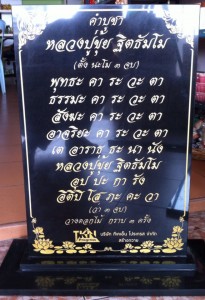 คำบูชา
หลวงปู่ขุ้ย ฐิตธัมโม
(ตั้ง นะโม ๓ จบ)
พุทธะ คา ระ วะ ตา
ธรรมะ คา ระ วะ ตา
สังฆะ คา ระ วะ ตา
อาจริยะ คา ระ วะ ตา
เต อาราธ ธะ นา นัง
หลวงปู่ขุ้ย ฐิตธัมโม
อุป ปะ กา รัง
อิติปิ โส ภะ คะ วา
(ว่า ๓ จบ)
วางดอกไม้ กราบ ๓ ครั้ง
บริษัท จำกัด
สร้างถวาย